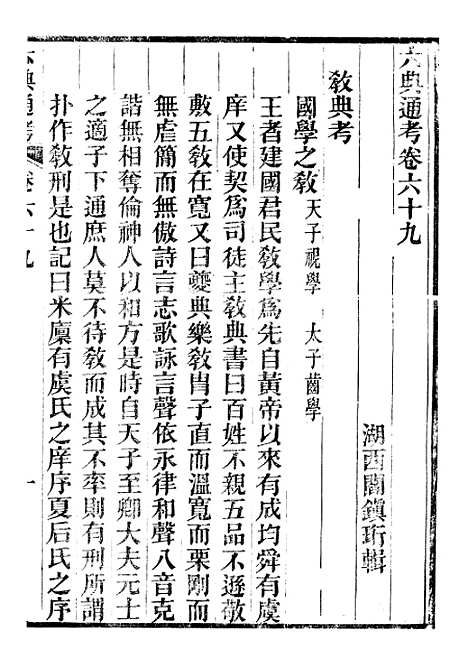 六典通考卷六十九
湖西閻鎮珩輯
敎典考
國學之敎 天子視學 太子齒學
王者建國君民敎學爲先自黃帝以來有成均舜有虞
庠又使契爲司徒主敎典書曰百姓不親五品不遜敬
敷五敎在寬又曰夔典樂敎胄子直而溫寬而栗剛而
無虐簡而無傲詩言志歌詠言聲依永律和聲八音克
諧無相奪倫神人以和方是時自天子至卿大夫元士
之適子下通庶人莫不待敎而成其不率則有刑所謂
扑作敎刑是也記曰米廩有虞氏之庠序夏后氏之序
六典通考 卷六十九 一